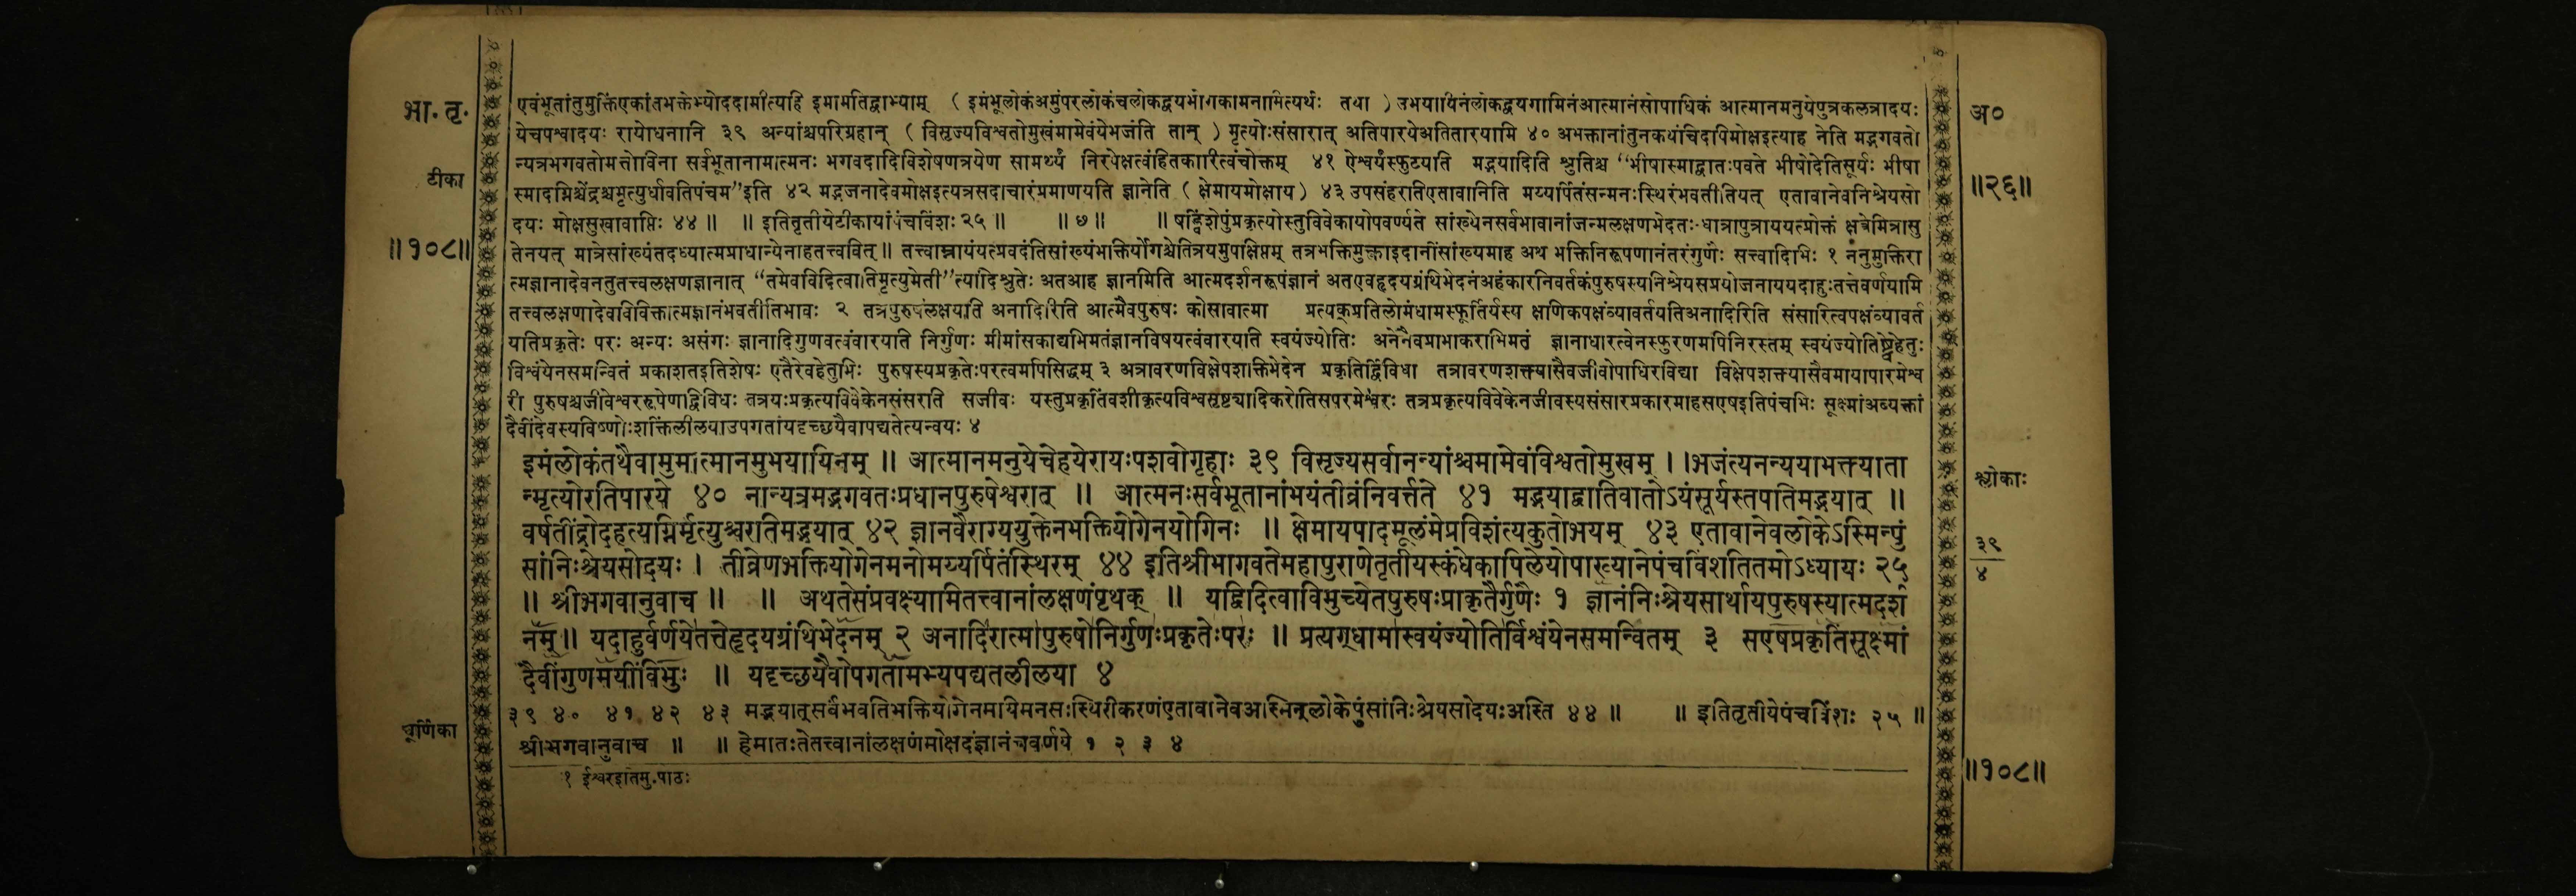 भा. तृ.
टीका
॥१०८॥
चूर्णिका
एवंभूतांतुमुक्तिंएकांतभक्तेभ्योददामीत्यहि इमामतिद्वाभ्याम् ( इमंभूलोकंअमुंपरलोकंचलोकद्वयभोगकामनामित्यर्थः तथा ) उभयायिनंलोकद्वयगामिनंआत्मानंसोपाधिकं आत्मानमनुयेपुत्रकलत्रादयः
येचपश्वादयः रायोधनानि ३९ अन्यांश्चपरिग्रहान् ( विसृज्यविश्वतोमुखंमामेवंयेभजंति तान् ) मृत्योःसंसारात् अतिपारयेअतितारयामि ४० अभक्तानांतुनकथंचिदपिमोक्षइत्याह नेति मद्भगवतो
न्यत्रभगवतोमत्तोविना सर्वभूतानामात्मनः भगवदादिविशेषणत्रयेण सामर्थ्यं निरपेक्षत्वंहितकारित्वंचोक्तम् ४१ ऐश्वर्यंस्फुटयति मद्भयादिति श्रुतिश्च “भीषास्माद्वातःपवते भीषोदेतिसूर्यः भीषा
स्मादग्निश्चेंद्रश्चमृत्युर्धावतिपंचम”इति ४२ मद्भजनादेवमोक्षइत्यत्रसदाचारंप्रमाणयति ज्ञानेति ( क्षेमायमोक्षाय ) ४३ उपसंहरतिएतावानिति मय्यर्पितंसन्मनःस्थिरंभवतीतियत् एतावानेवनिश्रेयसो
दयः मोक्षसुखावाप्तिः ४४ ॥ ॥ इतितृतीयेटीकायांपंचविंशः २५ ॥ ॥ ७ ॥ ॥ षड्विंशेपुंप्रकृत्योस्तुविवेकायोपवर्ण्यते सांख्येनसर्वभावानांजन्मलक्षणभेदतः धात्रापुत्राययत्प्रोक्तं क्षत्रेमित्रासु
तेनयत् मात्रेसांख्यंतदध्यात्मप्राधान्येनाहतत्त्ववित् ॥ तत्त्वाम्नायंयत्प्रवदंतिसांख्यंभक्तिर्योगश्चेतित्रयमुपक्षिप्तम् तत्रभक्तिमुक्त्वाइदानींसांख्यमाह अथ भक्तिनिरूपणानंतरंगुणैः सत्त्वादिभिः १ ननुमुक्तिरा
त्मज्ञानादेवनतुतत्त्वलक्षणज्ञानात् “तमेवविदित्वातिमृत्युमेती”त्यादिश्रुतेः अतआह ज्ञानमिति आत्मदर्शनरूपंज्ञानं अतएवहृदयग्रंथिभेदनंअहंकारनिवर्तकंपुरुषस्यनिश्रेयसप्रयोजनाययदाहुःतत्तेवर्णयामि
तत्त्वलक्षणादेवविविक्तात्मज्ञानंभवतीतिभावः २ तत्रपुरुषंलक्षयति अनादिरिति आत्मैवपुरुषः कोसावात्मा प्रत्यक्प्रतिलोमंधामस्फूर्तिर्यस्य क्षणिकपक्षंव्यावर्तयतिअनादिरिति संसारित्वपक्षंव्यावर्त
यतिप्रकृतेः परः अन्यः असंगः ज्ञानादिगुणवत्वंवारयति निर्गुणः मीमांसकाद्यभिमतंज्ञानविषयत्वंवारयति स्वयंज्योतिः अनेनैवप्राभाकराभिमतं ज्ञानाधारत्वेनस्फुरणमपिनिरस्तम् स्वयंज्योतिष्ट्वेहेतुः
विश्वंयेनसमन्वितं प्रकाशतइतिशेषः एतैरेवहेतुभिः पुरुषस्यप्रकृतेःपरत्वमपिसिद्धम् ३ अत्रावरणविक्षेपशक्तिभेदेन प्रकृतिर्द्विविधा तत्रावरणशक्त्यासैवजीवोपाधिरविद्या विक्षेपशक्त्यासैवमायापारमेश्व
री पुरुषश्चजीवेश्वररूपेणद्विविधः तत्रयःप्रकृत्यविवेकेनसंसरति सजीवः यस्तुप्रकृतिंवशीकृत्यविश्वसृष्ट्यादिकरोतिसपरमेश्वरः तत्रप्रकृत्यविवेकेनजीवस्यसंसारप्रकारमाहसएषइतिपंचभिः सूक्ष्मांअव्यक्तां
दैवींदेवस्यविष्णोःशक्तिंलीलयाउपगतांयदृच्छयैवापद्यतेत्यन्वयः ४
इमंलोकंतथैवामुमात्मानमुभयायिनम् ॥ आत्मानमनुयेचेहयेरायःपशवोगृहाः ३९ विसृज्यसर्वानन्यांश्चमामेवंविश्वतोमुखम् ॥ भजंत्यनन्ययाभक्त्याता
न्मृत्योरतिपारये ४० नान्यत्रमद्भगवतःप्रधानपुरुषेश्वरात् ॥ आत्मनःसर्वभूतानांभयंतीव्रंनिवर्त्तते ४१ मद्भयाद्वातिवातोऽयंसूर्यस्तपतिमद्भयात् ॥
वर्षतींद्रोदहत्यग्निर्मृत्युश्चरतिमद्भयात् ४२ ज्ञानवैराग्ययुक्तेनभक्तियोगेनयोगिनः ॥ क्षेमायपादमूलंमेप्रविशंत्यकुतोभयम् ४३ एतावानेवलोकेऽस्मिन्पुं
सांनिःश्रेयसोदयः । तीव्रेणभक्तियोगेनमनोमय्यर्पितंस्थिरम् ४४ इतिश्रीभागवतेमहापुराणेतृतीयस्कंधेकापिलेयोपाख्यानेपंचविंशतितमोऽध्यायः २५
॥ श्रीभगवानुवाच ॥ ॥ अथतेसंप्रवक्ष्यामितत्त्वानांलक्षणंपृथक् ॥ यद्विदित्वाविमुच्येतपुरुषःप्राकृतैर्गुणैः १ ज्ञानंनिःश्रेयसार्थायपुरुषस्यात्मदर्श
नम् ॥ यदाहुर्वर्णयेतत्तेहृदयग्रंथिभेदनम् २ अनादिरात्मापुरुषोनिर्गुणःप्रकृतेःपरः ॥ प्रत्यग्धामास्वयंज्योतिर्विश्वंयेनसमन्वितम् ३ सएषप्रकृतिंसूक्ष्मां
दैवींगुणमयींविभुः ॥ यदृच्छयैवोपगतामभ्यपद्यतलीलया ४
३९ ४० ४१ ४२ ४३ मद्भयात्सर्वंभवतिभक्तियोगेनमायिमनसःस्थिरीकरणंएतावानेवअस्मिन्लोकेपुंसांनिःश्रेयसोदयःअस्ति ४४ ॥ ॥ इतितृतीयेपंचविंशः २५ ॥
श्रीभगवानुवाच ॥ ॥ हेमातःतेतत्त्वानांलक्षणंमोक्षदंज्ञानंचवर्णये १ २ ३ ४
१ ईश्वरइतिमु.पाठः
अ०
॥२६॥
श्लोकाः
३९
४
॥१०८॥